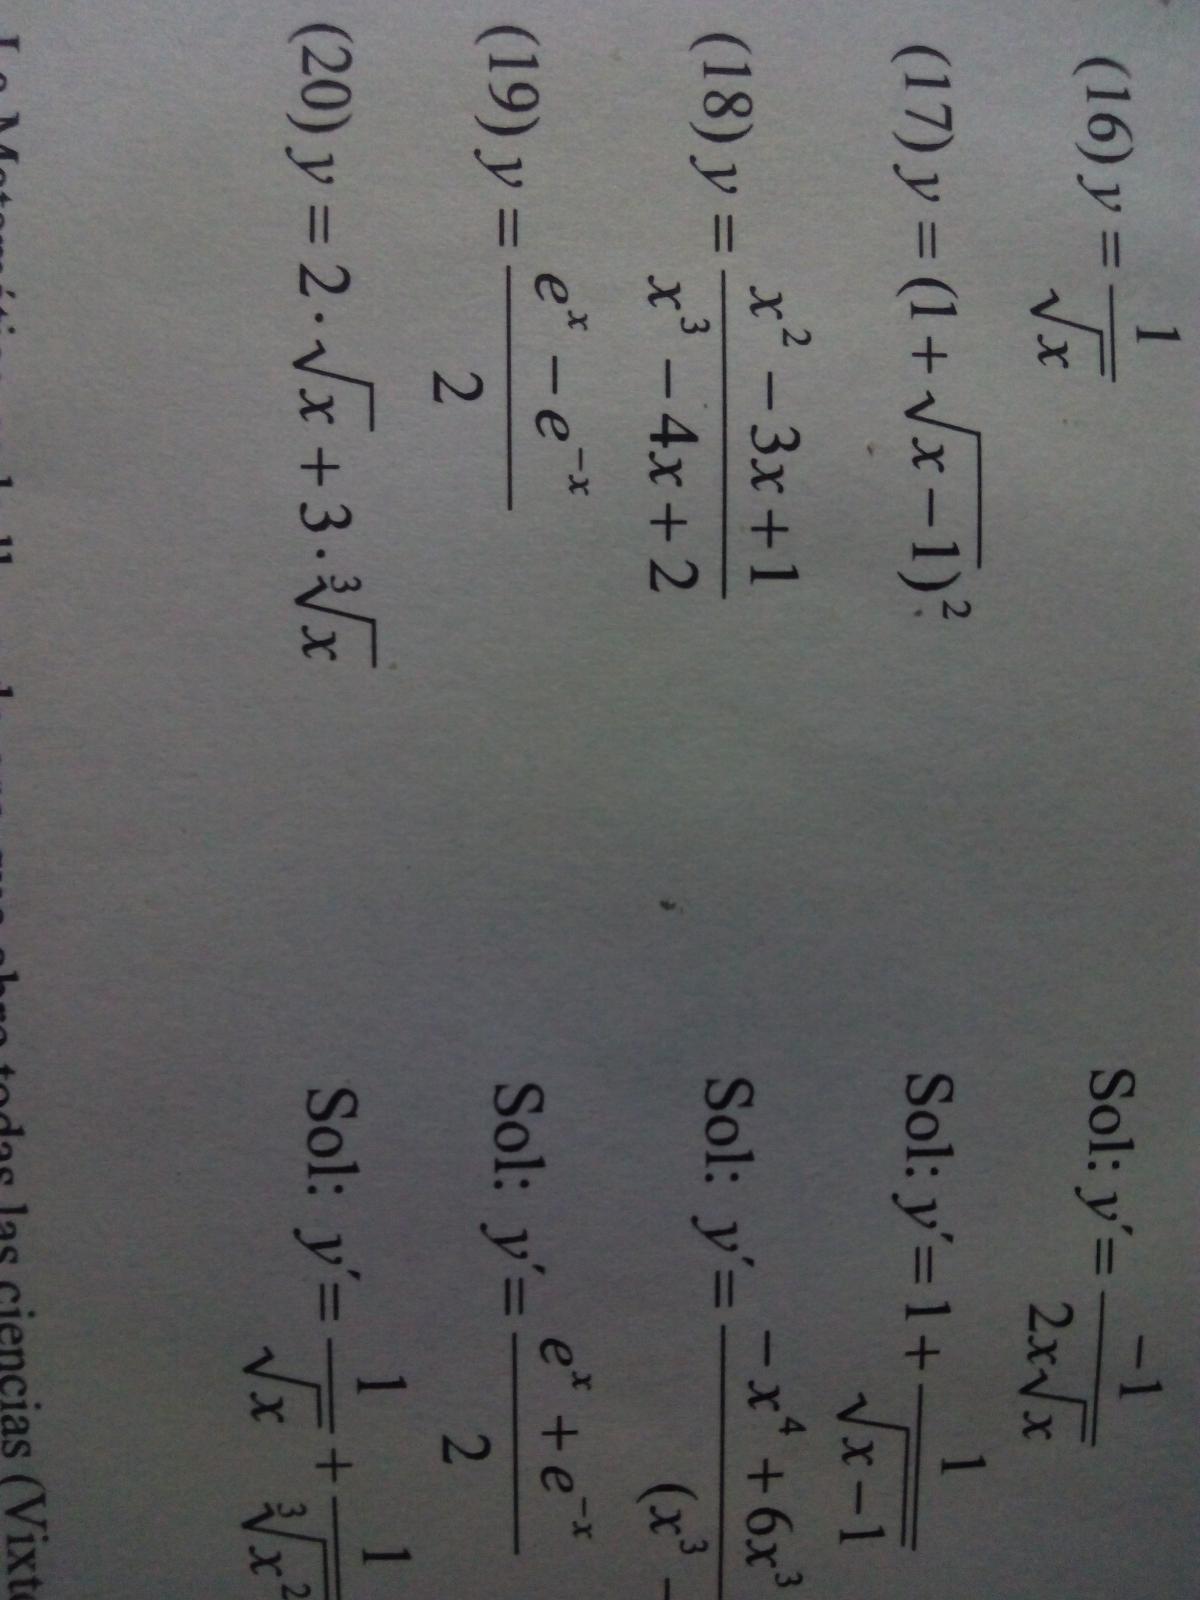 (16) y = 1/√x Sol: y′= −1/2x√x
(17) y = (1 + √x−1)² Sol: y′= 1 + 1/√x−1
(18) y = x² − 3x + 1/x³ − 4x + 2 Sol: y′= −x⁴ + 6x³/(x³ −
(19) y = eˣ − e⁻ˣ/2 Sol: y′= eˣ + e⁻ˣ/2
(20) y = 2·√x + 3·∛x Sol: y′= 1/√x + 1/∛x²
todas las ciencias